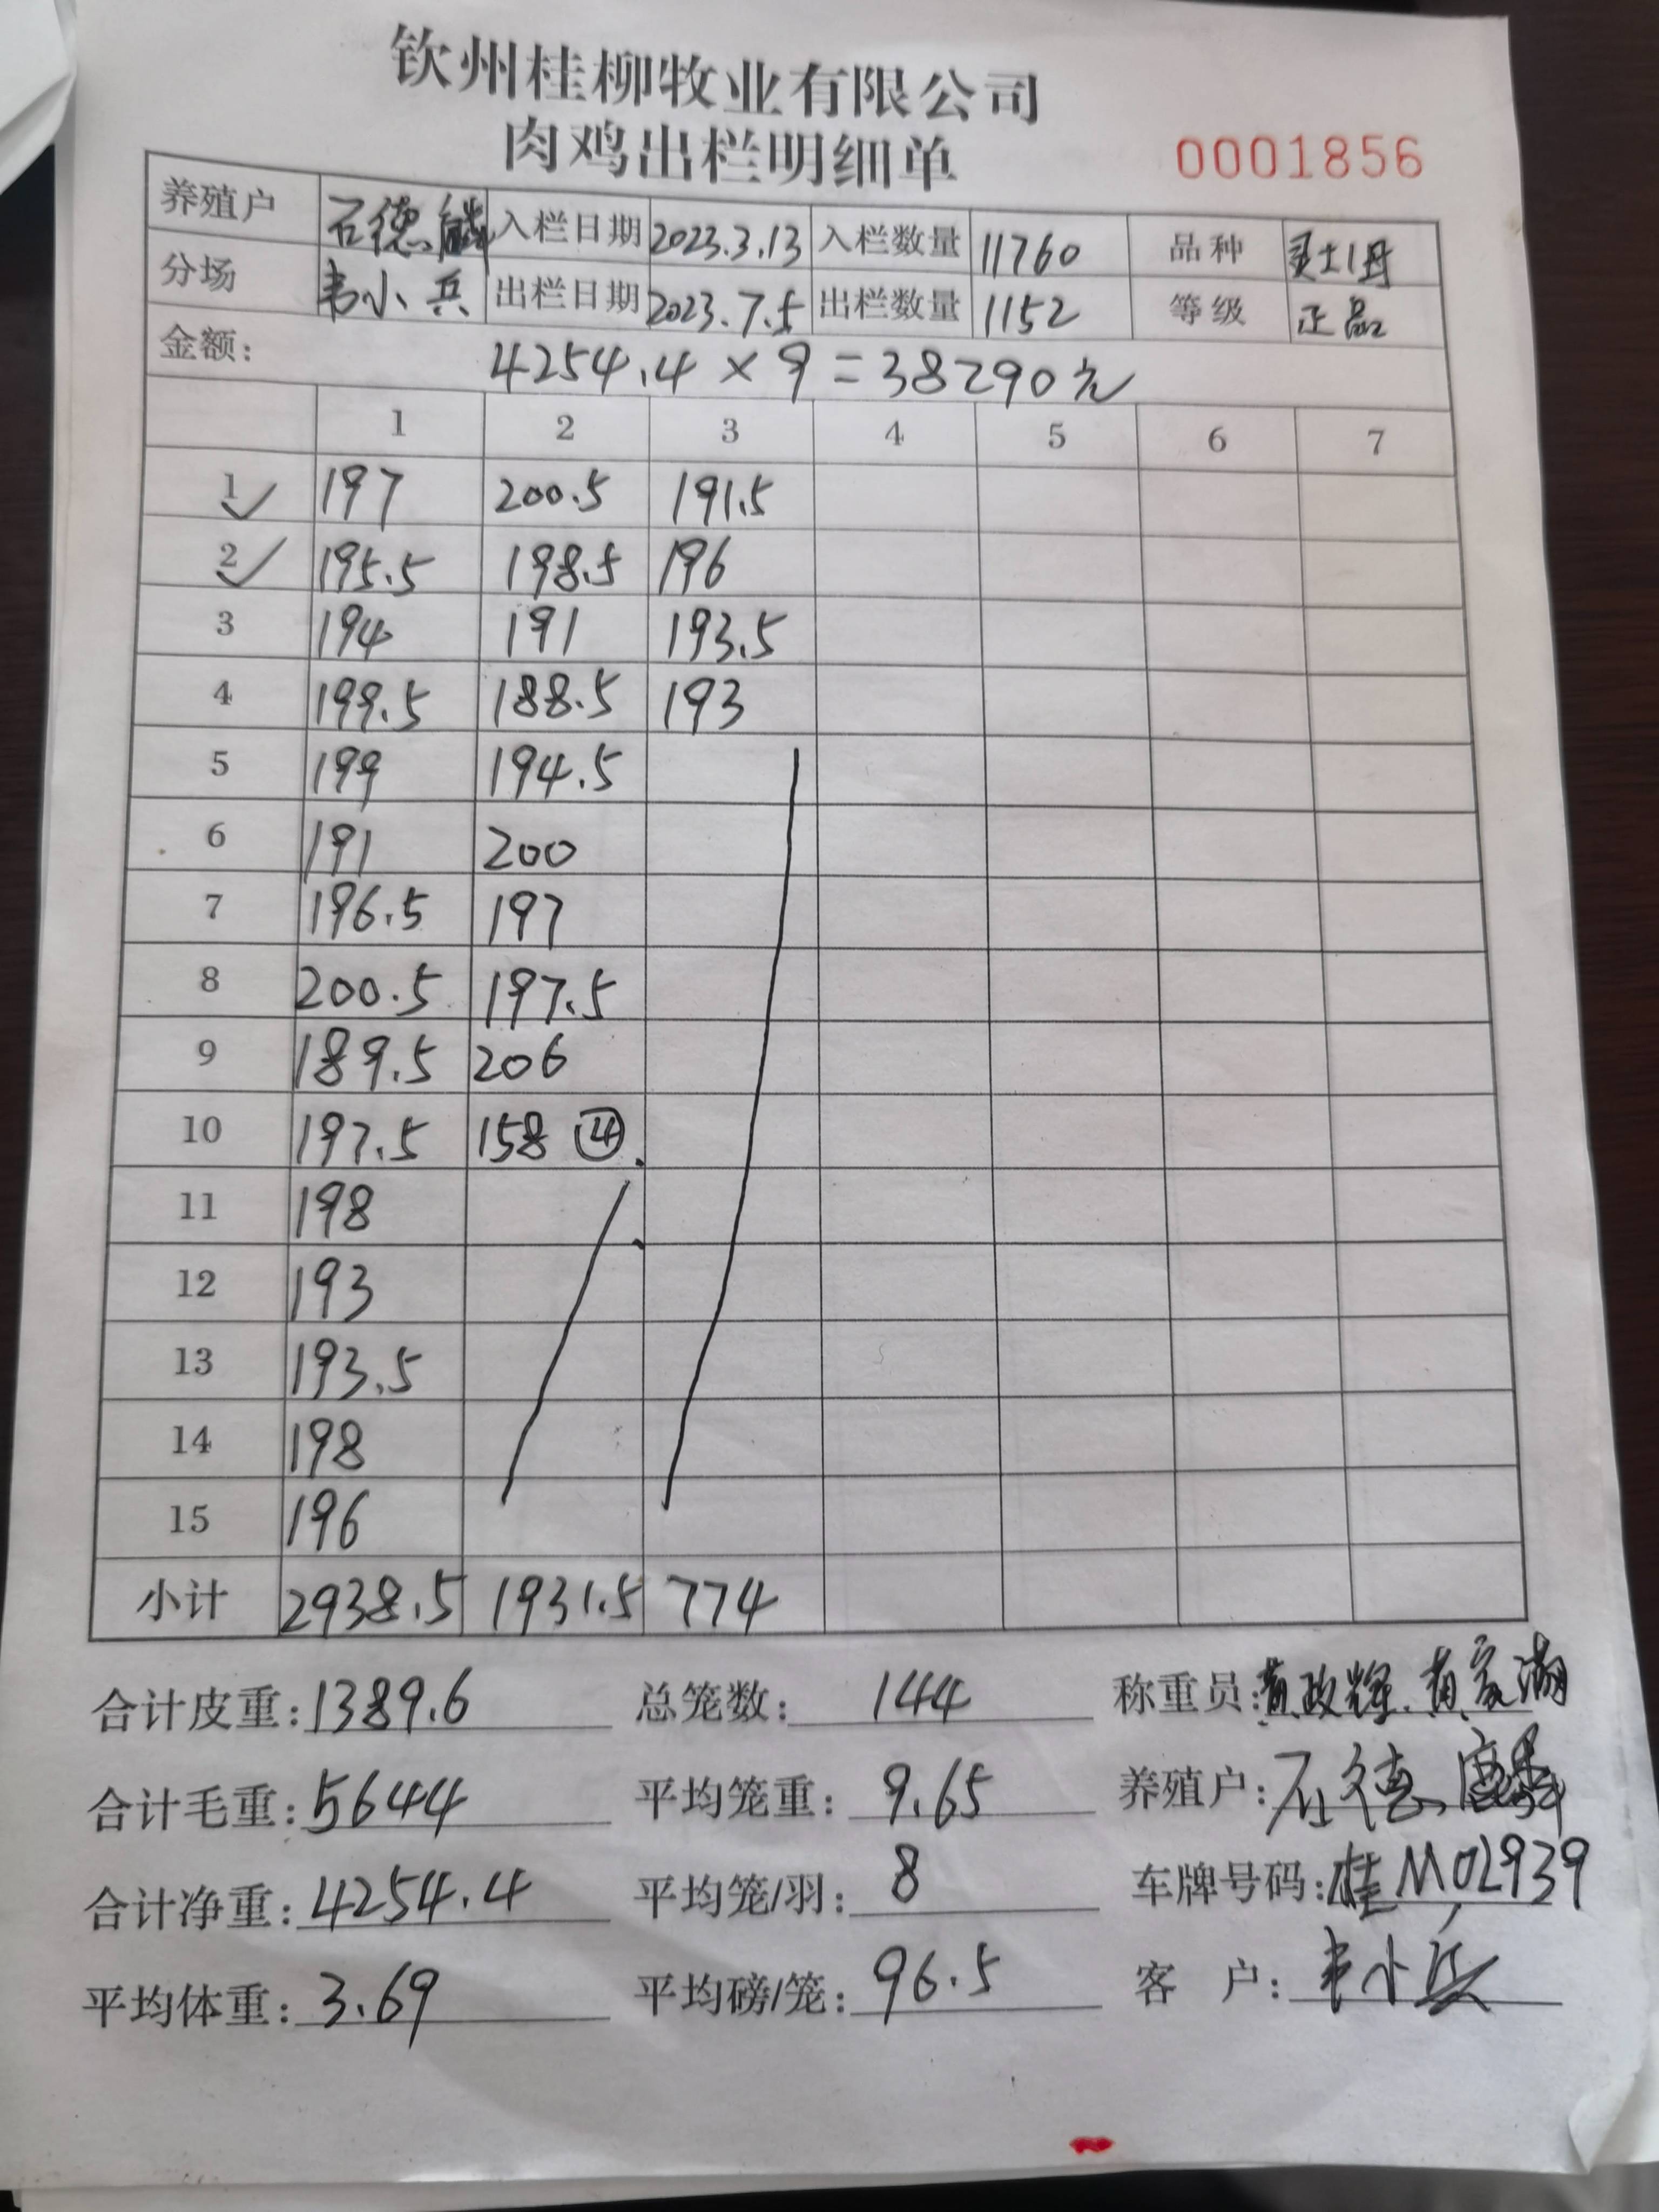 钦州桂柳牧业有限公司
肉鸡出栏明细单 0001856
养殖户 石德麟 入栏日期 2023.3.13 入栏数量 11760 品种
分场 韦小兵 出栏日期 2023.7.5 出栏数量 1152 等级 正品
金额: 4254.4 × 9 = 38290元
1 2 3 4 5 6 7
1 197 200.5 191.5
2 195.5 198.5 196
3 194 191 193.5
4 199.5 188.5 193
5 199 194.5
6 191 200
7 196.5 197
8 200.5 197.5
9 189.5 206
10 197.5 158 ④
11 198
12 193
13 193.5
14 198
15 196
小计 2938.5 1931.5 774
合计皮重: 1389.6 总笼数: 144 称重员:
合计毛重: 5644 平均笼重: 9.65 养殖户: 石德麟
合计净重: 4254.4 平均笼/羽: 8 车牌号码: 桂M02939
平均体重: 3.69 平均磅/笼: 96.5 客 户: 韦小兵